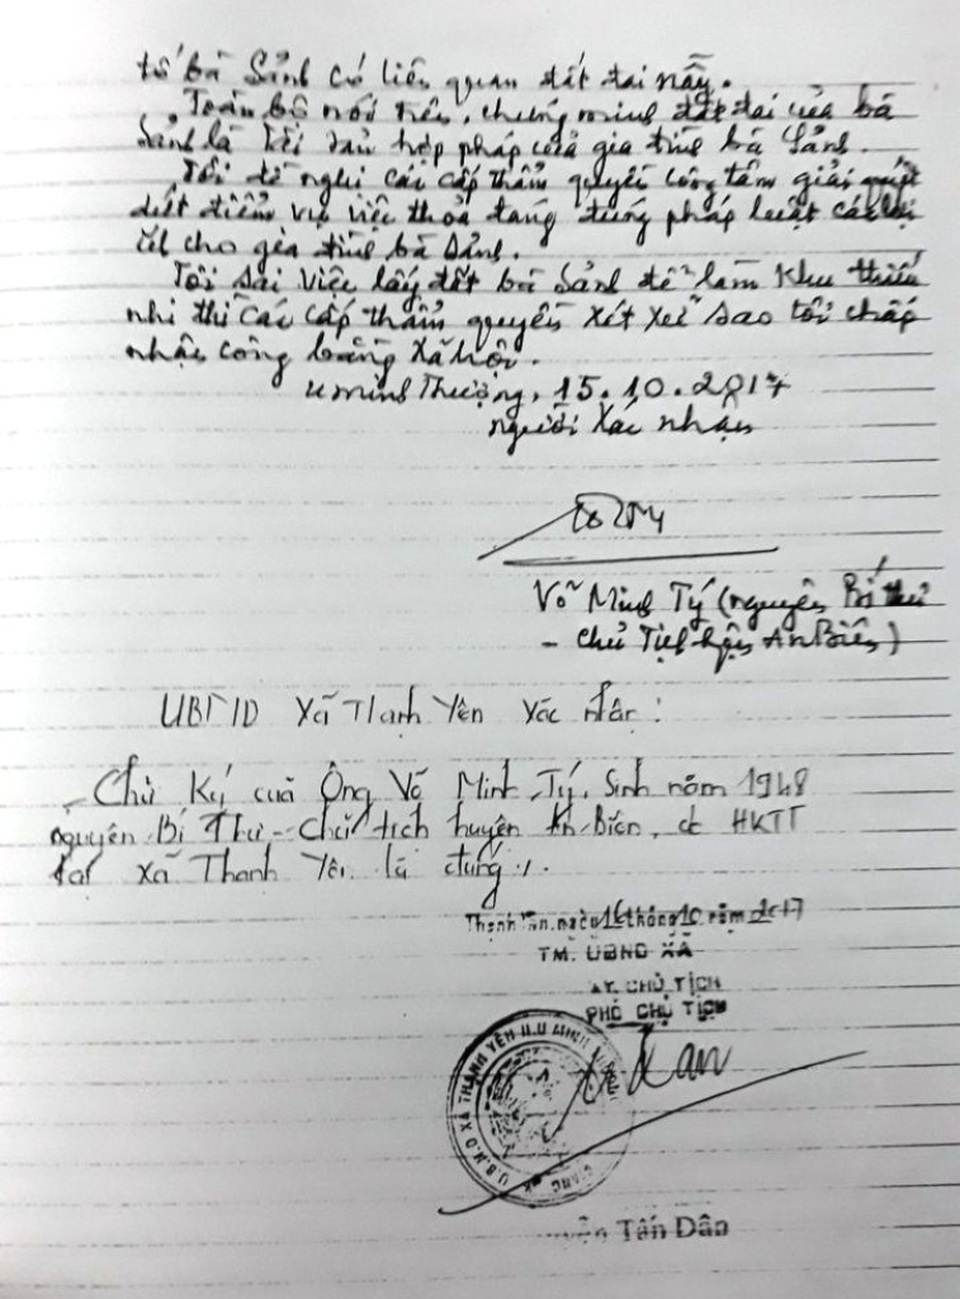 tố bà Sảnh có liên quan đất đai nầy.
Toàn bộ nói trên, chứng minh đất đai của bà
Sảnh là tài sản hợp pháp của gia đình bà Sảnh.
Tôi đề nghị các cấp thẩm quyền công tâm giải quyết
dứt điểm vụ việc thỏa đáng đúng pháp luật các lợi
ích cho gia đình bà Sảnh.
Tôi sai việc lấy đất bà Sảnh để làm khu thiếu
nhi thì các cấp thẩm quyền xét xử sao tôi chấp
nhận công bằng xã hội.
U Minh Thượng, 15.10.2017
người xác nhận
Võ Minh Tý (nguyên Bí thư
- Chủ Tịch huyện An Biên)
UBND xã Thạnh Yên xác nhận:
- Chữ ký của Ông Võ Minh Tý, Sinh năm 1948
nguyên Bí Thư - Chủ tịch huyện An Biên, có HKTT
tại xã Thạnh Yên là đúng ./.
Thạnh Yên, ngày 16 tháng 10 năm 2017
TM. UBND XÃ
KT. CHỦ TỊCH
PHÓ CHỦ TỊCH
U.B.N.D XÃ THẠNH YÊN H.U MINH
GIANG
Tấn Dân